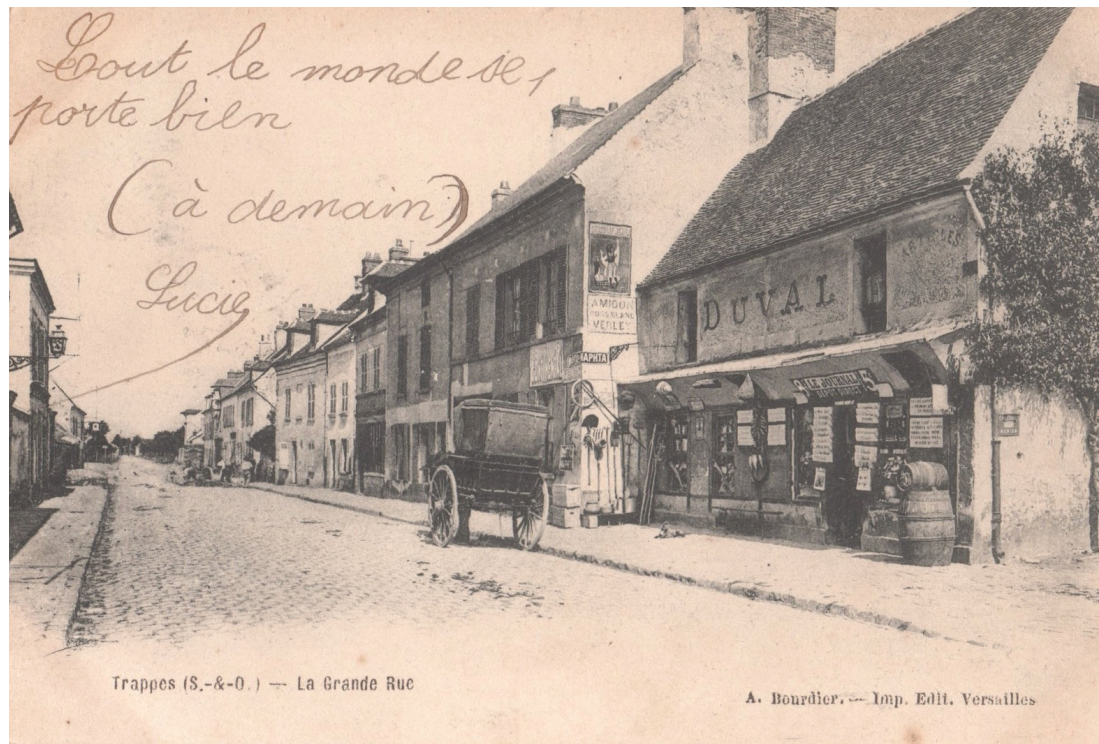 Tout le monde se
porte bien
(à demain)
Lucie
AMIDON
VERLEY
NAPHTA
DUVAL
LE JOURNAL
5
Trappes (S.-&-O.) — La Grande Rue
A. Bourdier. — Imp. Edit. Versailles